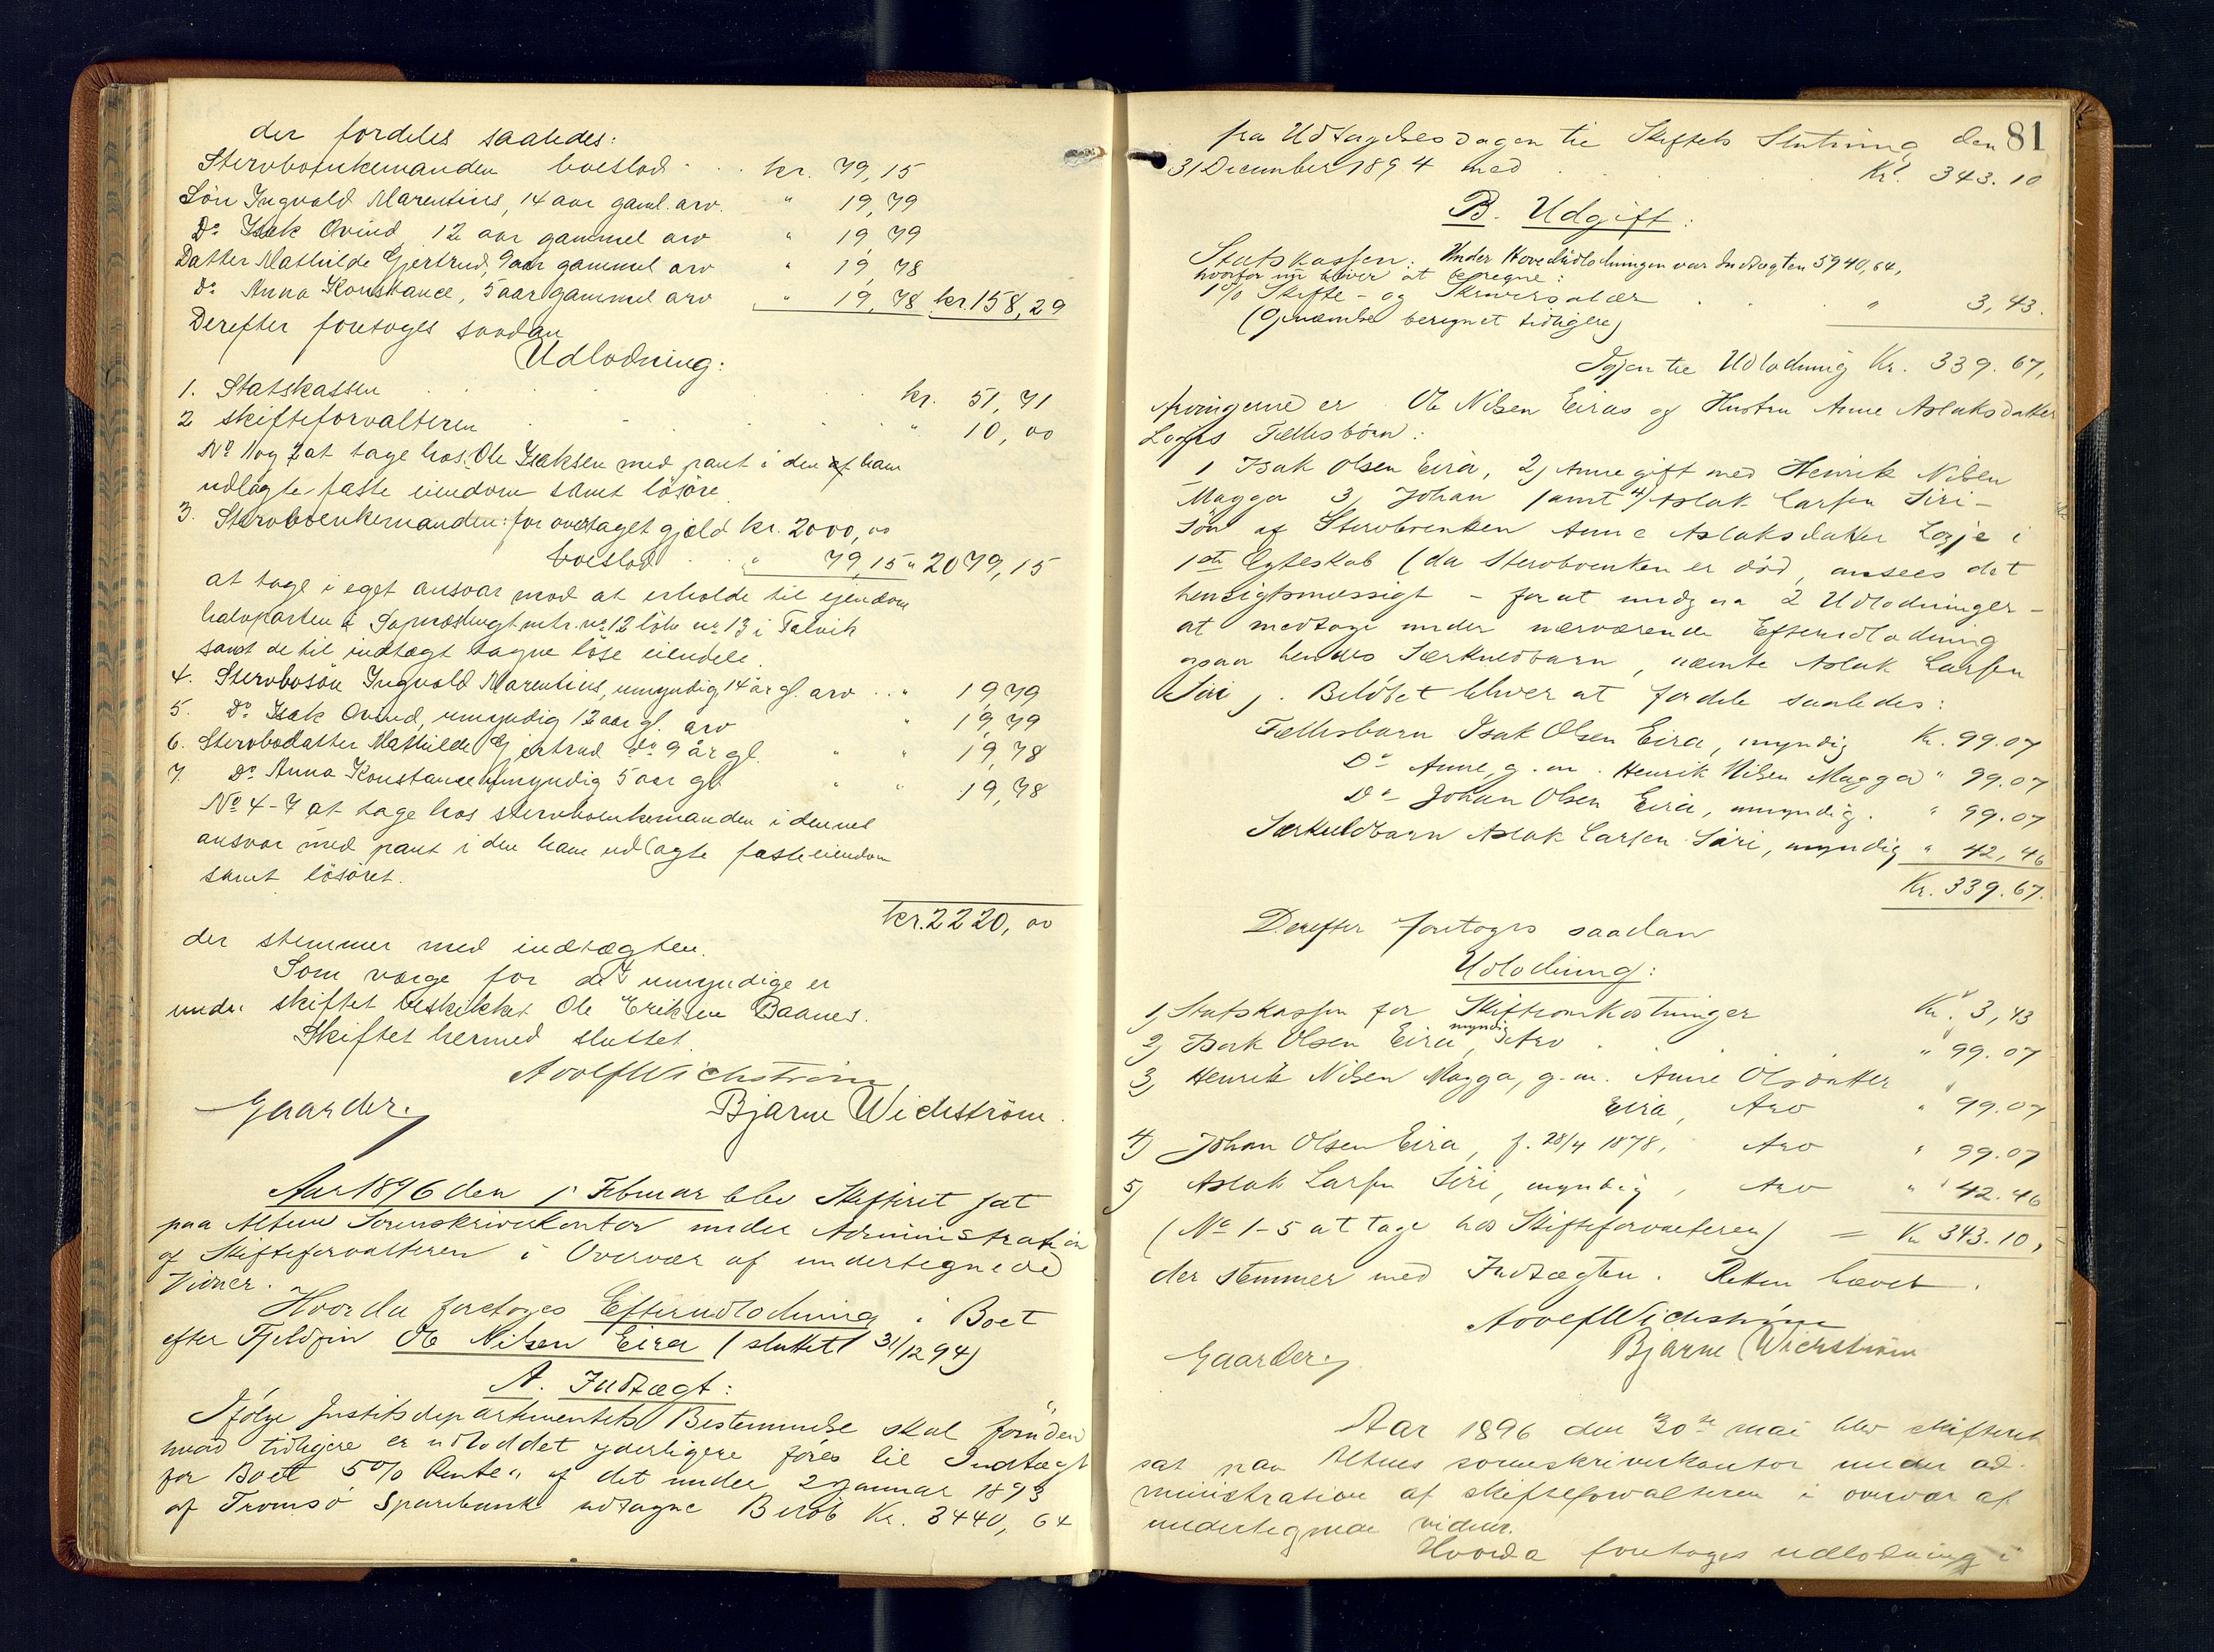 der fordeles saaledes:
Stervboenkemanden boeslod . . kr. 79,15
Sön Ingvald Marentius, 14 aar gaml. arv. " 19,79
Do Isak Ovind 12 aar gammel arv " 19,79
Datter Mathilde Gjertrud, 9 aar gammel arv " 19,78
Do Anna Konstance, 5 aar gammel arv " 19,78 kr. 158,29
Derefter foretoges saadan
Udlodning:
1. Statskassen kr. 51,71
2 skifteforvalteren " 10,00
No 1 og 2 at tage hos Ole Isaksen med pant i den af ham
udlagte faste eiendom samt lösöre
3. Stervboenkemanden: for overtaget gjæld kr. 2000,00
boeslod " 79,15 " 2079,15
at tage i eget ansvar mod at erholde til eiendom
halvparten i mtr. no 12 löbe no 13 i Talvik
samt de til indtægt tagne löse eiendele.
4. Stervbosön Ingvald Marentius, umyndig 14 år gl. arv . . " 19,79
5. Do Isak Ovind, umyndig 12 aar gl. arv " 19,79
6. Stervbodatter Mathilde Gjertrud do 9 år gl. " " 19,78
7. Do Anna Konstance umyndig 5 aar gl " " 19,78
No 4-7 at tage hos stervboenkemanden i dennes
ansvar med pant i den ham udlagte faste eiendom
samt lösöret.
kr. 2220,00
der stemmer med indtægten.
Som værge for de umyndige er
under skiftet beskikket Ole Eriksen Baanes.
Skiftet hermed sluttet.
Adolf Wichström
Gaarder
Bjarne Wichström.
Aar 1896 den 1 Februar blev Skifteret sat
paa Altens Sorenskriverkontor under Administration
af Skifteforvalteren i Overvær af undertegnede
Vidner.
Hvorda foretoges Efterudlodning i Boet
efter Fjeldfin Ole Nilsen Eira (sluttet 31/12 94)
A. Indtægt:
Ifölge Justitsdepartementets Bestemmelse skal foruden
hvad tidligere er udloddet yderligere föres til Indtægt
for Boet 5% Rente af det under 2 januar 1893
af Tromsö Sparebank udtagne Belöb Kr. 3440,64
81
fra Udtagelsesdagen til Skiftets Slutning den
31 December 1894 med . . . Kr. 343.10
B. Udgift:
Statskassen: Under Hovedudlodningen var Indtægten 5940,64,
hvorfor nu bliver at beregne:
1% Skifte- og Skriversalær . . . " 3,43.
( beregnet tidligere)
Igjen til Udlodning Kr. 339.67,
Arvingerne er Ole Nilsen Eiras og Hustru Anne Aslaksdatter
Logjes Fællesbörn:
1 Isak Olsen Eira, 2) Anne gift med Henrik Nilsen
Magga 3) Johan samt 4) Aslak Larsen Siri -
Sön af Stervboenken Anne Aslaksdatter Logje i
1ste Egteskab (da Stervboenken er död, ansees det
hensigtsmæssigt - for at undgaa 2 Udlodninger -
at medtage under nærværende Efterudlodning
ogsaa hendes Særkuldbarn, nævnte Aslak Larsen
Siri). Belöbet bliver at fordele saaledes:
Fællesbarn Isak Olsen Eira, myndig Kr. 99.07
Do Anne, g. m. Henrik Nilsen Magga " 99.07
Do Johan Olsen Eira, umyndig. " 99.07
Særkuldbarn Aslak Larsen Siri, myndig " 42,46
Kr. 339.67.
Derefter foretoges saadan
Udlodning:
1) Statskassen for Skifteomkostninger Kr. 3,43
2) Isak Olsen Eira, myndig Arv . . . " 99.07
3) Henrik Nilsen Magga, g. m. Anne Olsdatter
Eira, Arv " 99.07
4) Johan Olsen Eira, f. 28/4 1878, Arv " 99.07
5) Aslak Larsen Siri, myndig, Arv " 42.46
(No 1-5 at tage hos Skifteforvalteren) = Kr 343.10,
der stemmer med Indtægten. Retten hævet.
Adolf Wichström
Gaarder
Bjarne Wichström
Aar 1896 den 30te mai blev skifteret
sat paa Altens sorenskriverkontor under ad-
ministration af skifteforvalteren i overvær af
undertegnede vidner.
Hvorda foretoges udlodning i